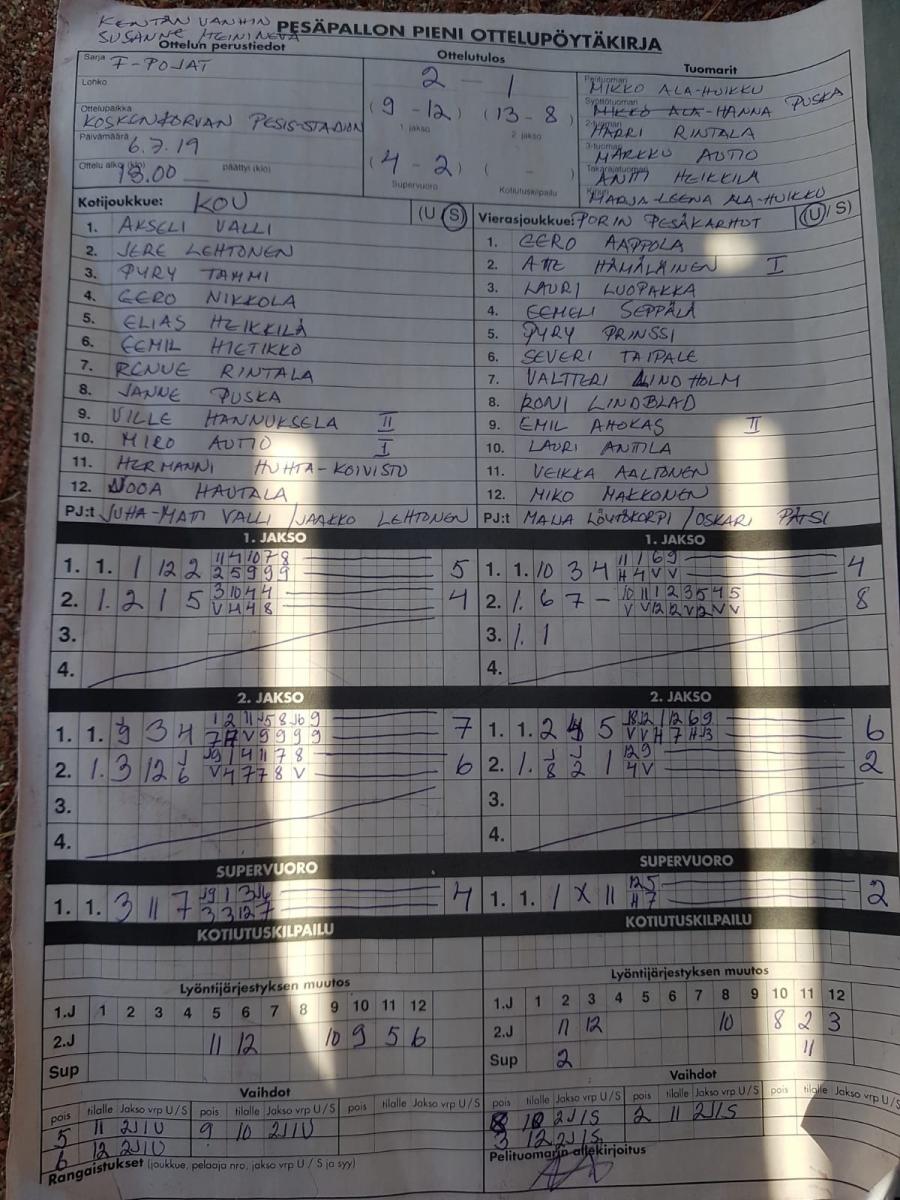 KENTÄN VANHIN
SUSANNE HEININEVA
PESÄPALLON PIENI OTTELUPÖYTÄKIRJA
Ottelun perustiedot
Sarja F-POJAT
Lohko
Ottelupaikka KOSKENKORVAN PESIS-STADION
Päivämäärä 6.7.19
Ottelu alkoi (klo) 18.00 päättyi (klo)
Ottelutulos
2 - 1
(9 - 12) (13 - 8)
1. jakso 2. jakso
(4 - 2) ( - )
Supervuoro Kotiutuskilpailu
Tuomarit
Pelituomari MIKKO ALA-HUIKKU
Syöttötuomari MIKKO ALA-HANNA PUSKA
2-tuomari HARRI RINTALA
3-tuomari MARKKU AUTIO
Takarajatuomari ANTTI HEIKKILÄ
Kirjuri MARJA-LEENA ALA-HUIKKU
Kotijoukkue: KOU (U S)
1. AKSELI VALLI
2. JERE LEHTONEN
3. PYRY TAMMI
4. EERO NIKKOLA
5. ELIAS HEIKKILÄ
6. EEMIL HIETIKKO
7. RENUE RINTALA
8. JANNE PUSKA
9. VILLE HANNUKSELA II
10. MIRO AUTIO I
11. HERMANNI HUHTA-KOIVISTO
12. NOOA HAUTALA
PJ:t JUHA-MATI VALLI / JAAKKO LEHTONEN
Vierasjoukkue: PORIN PESÄKARHUT (U / S)
1. EERO AAPPOLA
2. ATTE HÄMÄLÄINEN I
3. LAURI LUOPAKKA
4. EEMELI SEPPÄLÄ
5. PYRY PRINSSI
6. SEVERI TAIPALE
7. VALTTERI LINDHOLM
8. RONI LINDBLAD
9. EMIL AHOKAS II
10. LAURI ANTTILA
11. VEIKKA AALTONEN
12. MIKO MAKKONEN
PJ:t MAIJA LÖYTÖKORPI / OSKARI PÄTSI
1. JAKSO
1. 1. 1 12 2 11 4 10 7 8 5
2 5 9 9 9
2. 1. 2 1 5 3 10 4 4 4
V 4 4 8
3.
4.
1. JAKSO
1. 1. 10 3 4 11 1 6 9 4
H 4 V V
2. 1. 6 7 - 10 11 1 2 3 5 4 5 8
V V 12 12 V 12 V V
3. 1. 1
4.
2. JAKSO
1. 1. 9 3 4 7
2. 1. 3 12 6 6
3.
4.
2. JAKSO
1. 1. 2 5 6
2. 1. 8 2 1 12 9 2
4 V
3.
4.
SUPERVUORO
1. 1. 3 11 7 4
3 3 12 7
SUPERVUORO
1. 1. 1 X 11 12 5 2
H 7
KOTIUTUSKILPAILU
KOTIUTUSKILPAILU
Lyöntijärjestyksen muutos
1.J 1 2 3 4 5 6 7 8 9 10 11 12
2.J 11 12 10 9 5 6
Sup
Lyöntijärjestyksen muutos
1 2 3 4 5 6 7 8 9 10 11 12
2.J 11 12 10 8 2 3
Sup 2 11
Vaihdot
pois tilalle Jakso vrp U/S pois tilalle Jakso vrp U/S pois tilalle Jakso vrp U/S
5 11 2J1U 9 10 2J1U
6 12 2J1U
Rangaistukset (joukkue, pelaaja nro, jakso vrp U / S ja syy)
Vaihdot
pois tilalle Jakso vrp U/S pois tilalle Jakso vrp U/S pois tilalle Jakso vrp U/S
8 10 2J1S 2 11 2J1S
3 12 2J1S
Pelituomarin allekirjoitus